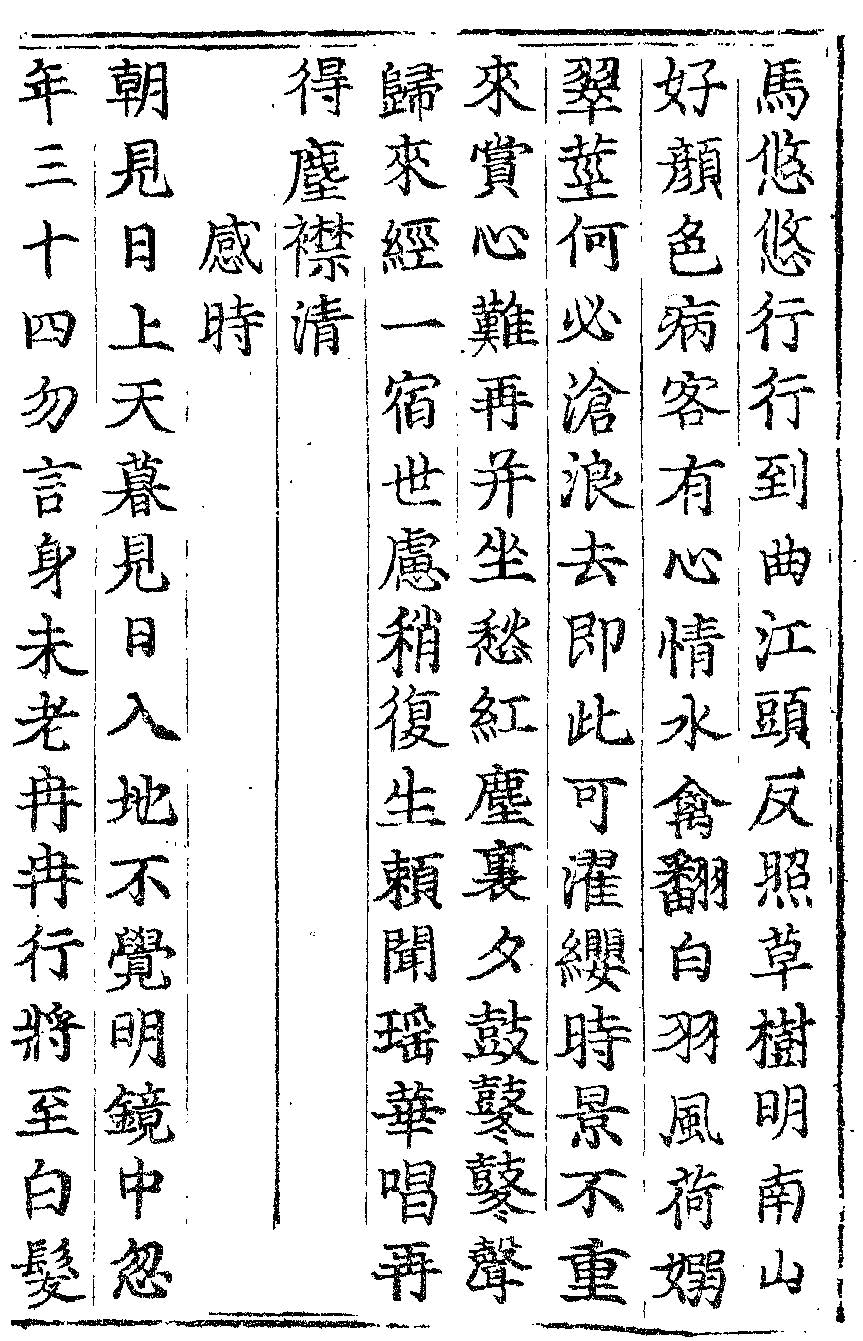 馬悠悠行行到曲江頭反照草樹明南山
好顔色病客有心情水禽翻白羽風荷嫋
翠莖何必滄浪去即此可濯纓時景不重
來賞心難再并坐愁紅塵裏夕鼓鼕鼕聲
歸來經一宿世慮稍復生頼聞瑶華唱再
得塵襟清
感時
朝見日上天暮見日入地不覺明鏡中忽
年三十四勿言身未老冉冉行將至白髮